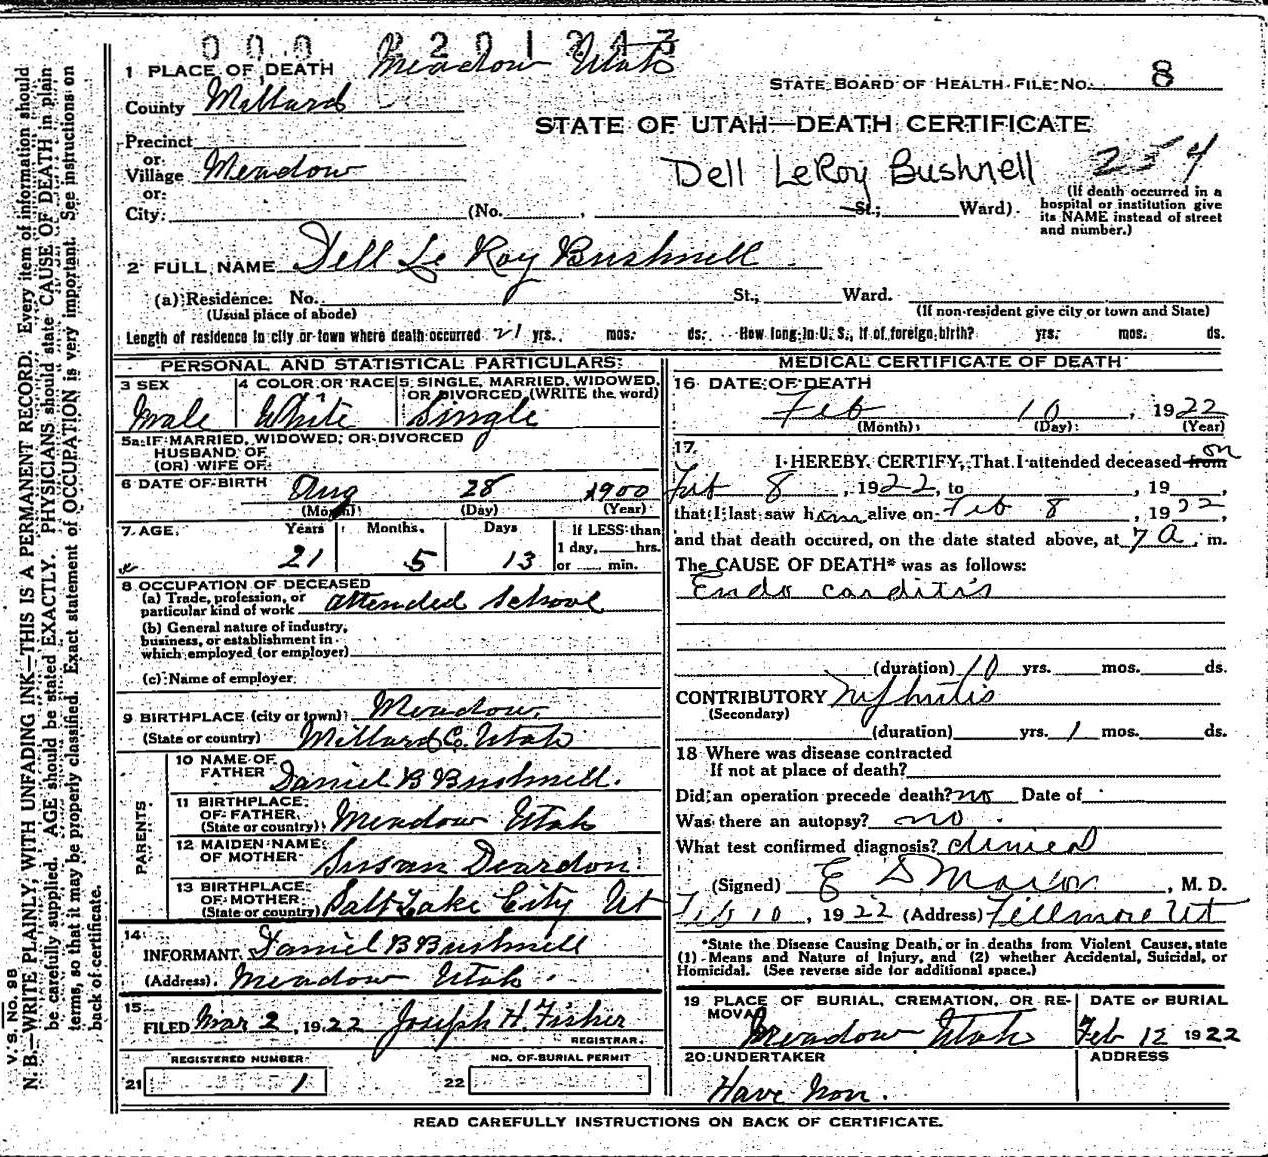 000 2201243
1 PLACE OF DEATH Meadow Utah
STATE BOARD OF HEALTH FILE NO. 8
County Millard
STATE OF UTAH—DEATH CERTIFICATE
Precinct
or
Village Meadow
or
Dell LeRoy Bushnell 254
City (No. , St.; Ward)
(If death occurred in a
hospital or institution give
its NAME instead of street
and number.)
2 FULL NAME Dell Le Roy Bushnell
(a) Residence. No. St., Ward.
(Usual place of abode) (If non-resident give city or town and State)
Length of residence in city or town where death occurred 21 yrs. mos. ds. How long in U. S., if of foreign birth? yrs. mos. ds.
PERSONAL AND STATISTICAL PARTICULARS
3 SEX 4 COLOR OR RACE 5 SINGLE, MARRIED, WIDOWED,
OR DIVORCED (WRITE the word)
Male White Single
5a IF MARRIED, WIDOWED, OR DIVORCED
HUSBAND OF
(OR) WIFE OF
6 DATE OF BIRTH Aug 28 1900
(Month) (Day) (Year)
7 AGE Years Months Days If LESS than
1 day, hrs.
or min.
21 5 13
8 OCCUPATION OF DECEASED
(a) Trade, profession, or
particular kind of work attended school
(b) General nature of industry,
business, or establishment in
which employed (or employer)
(c) Name of employer
9 BIRTHPLACE (city or town) Meadow
(State or country) Millard Co. Utah
PARENTS
10 NAME OF
FATHER Daniel B Bushnell.
11 BIRTHPLACE
OF FATHER
(State or country) Meadow Utah
12 MAIDEN NAME
OF MOTHER Susan Deardon
13 BIRTHPLACE
OF MOTHER
(State or country) Salt Lake City Ut
14
INFORMANT Daniel B Bushnell
(Address) Meadow Utah.
15
FILED Mar 2, 1922 Joseph H. Fisher
REGISTRAR.
REGISTERED NUMBER NO. OF BURIAL PERMIT
21 1 22
MEDICAL CERTIFICATE OF DEATH
16 DATE OF DEATH
Feb 10, 1922
(Month) (Day) (Year)
17
I HEREBY CERTIFY, That I attended deceased from on
Feb 8, 1922, to , 19 ,
that I last saw him alive on Feb 8, 1922,
and that death occured, on the date stated above, at 7 a. m.
The CAUSE OF DEATH* was as follows:
Endo carditis
(duration) 10 yrs. mos. ds.
CONTRIBUTORY Nephritis
(Secondary)
(duration) yrs. 1 mos. ds.
18 Where was disease contracted
If not at place of death?
Did an operation precede death? no Date of
Was there an autopsy? no.
What test confirmed diagnosis? clinical
(Signed) E S , M. D.
Feb 10, 1922 (Address) Fillmore Ut
*State the Disease Causing Death, or in deaths from Violent Causes, state
(1) Means and Nature of Injury, and (2) whether Accidental, Suicidal, or
Homicidal. (See reverse side for additional space.)
19 PLACE OF BURIAL, CREMATION, OR RE-
MOVAL
Meadow Utah
DATE OF BURIAL
Feb 12 1922
20 UNDERTAKER ADDRESS
Have Non.
READ CAREFULLY INSTRUCTIONS ON BACK OF CERTIFICATE.
V. S. NO. 98
N. B.—WRITE PLAINLY, WITH UNFADING INK—THIS IS A PERMANENT RECORD. Every item of information should
be carefully supplied. AGE should be stated EXACTLY. PHYSICIANS should state CAUSE OF DEATH in plain
terms, so that it may be properly classified. Exact statement of OCCUPATION is very important. See instructions on
back of certificate.